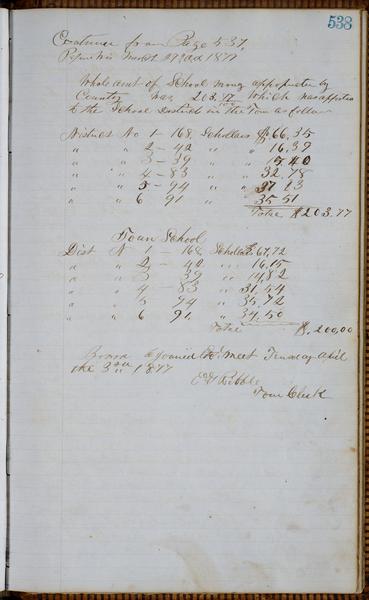 538
Continued from Page 537,
March 27th 1877
Whole amt of School mony appropriated by
County was 203.77 which was apportion
to the School District in the Town as follow
District No 1 - 168 Schollars $66,35
" " 2 - 42 " " 16,39
" " 3 - 39 " " 40
" " 4 - 83 " " 32,78
" " 5 - 94 " " 37
" " 6 91 " " 35 51
Total $203.77
Town School
Dist N 1 - 168 Schollars 67,72
" " 2 - 42 " " 16,15
" " 3 39 " " 14,82
" " 4 - 83 " " 31,54
" " 5 94 " " 35,72
" " 6 91 " " 34,50
Total $,200,00
Board ajourned to meet Tuesday April
the 3rd 1877
Ribble
Town Clerk